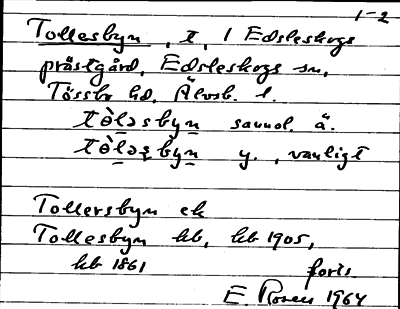 1-2
Tollesbyn, t, 1 Edsleskogs
prästgård, Edsleskogs sn,
Tössbo hd, Älvsb. l.
tòləsbyn sannol. ä.
tòləsbyn y., vanligt
Tollersbyn ek
Tollesbyn kb, kb 1905,
kb 1861
foris
E. Rosen 1964